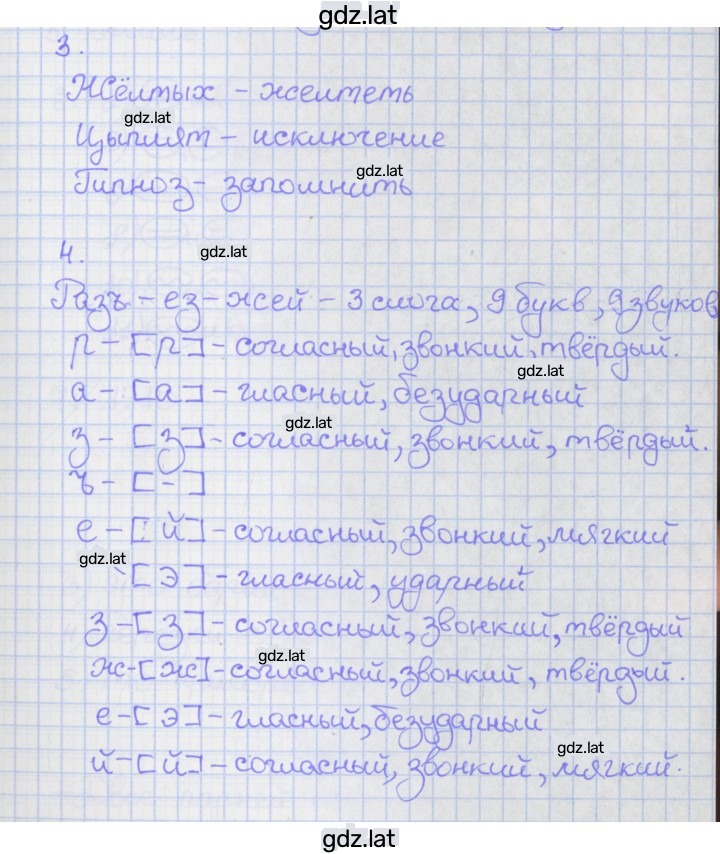 gdz.lat
3.
Жёлтых - желтеть
gdz.lat
Цыплят - исключение
gdz.lat
Гипноз - запомнить
4.
gdz.lat
Разъ - ез - жей - 3 слога, 9 букв, 9 звуков
р - [р] - согласный, звонкий, твёрдый.
gdz.lat
а - [а] - гласный, безударный
gdz.lat
з - [з] - согласный, звонкий, твёрдый.
ъ - [-]
е - [й] - согласный, звонкий, мягкий
gdz.lat
[э] - гласный, ударный
з - [з] - согласный, звонкий, твёрдый
gdz.lat
ж - [ж] - согласный, звонкий, твёрдый.
е - [э] - гласный, безударный
gdz.lat
й - [й] - согласный, звонкий, мягкий.
gdz.lat